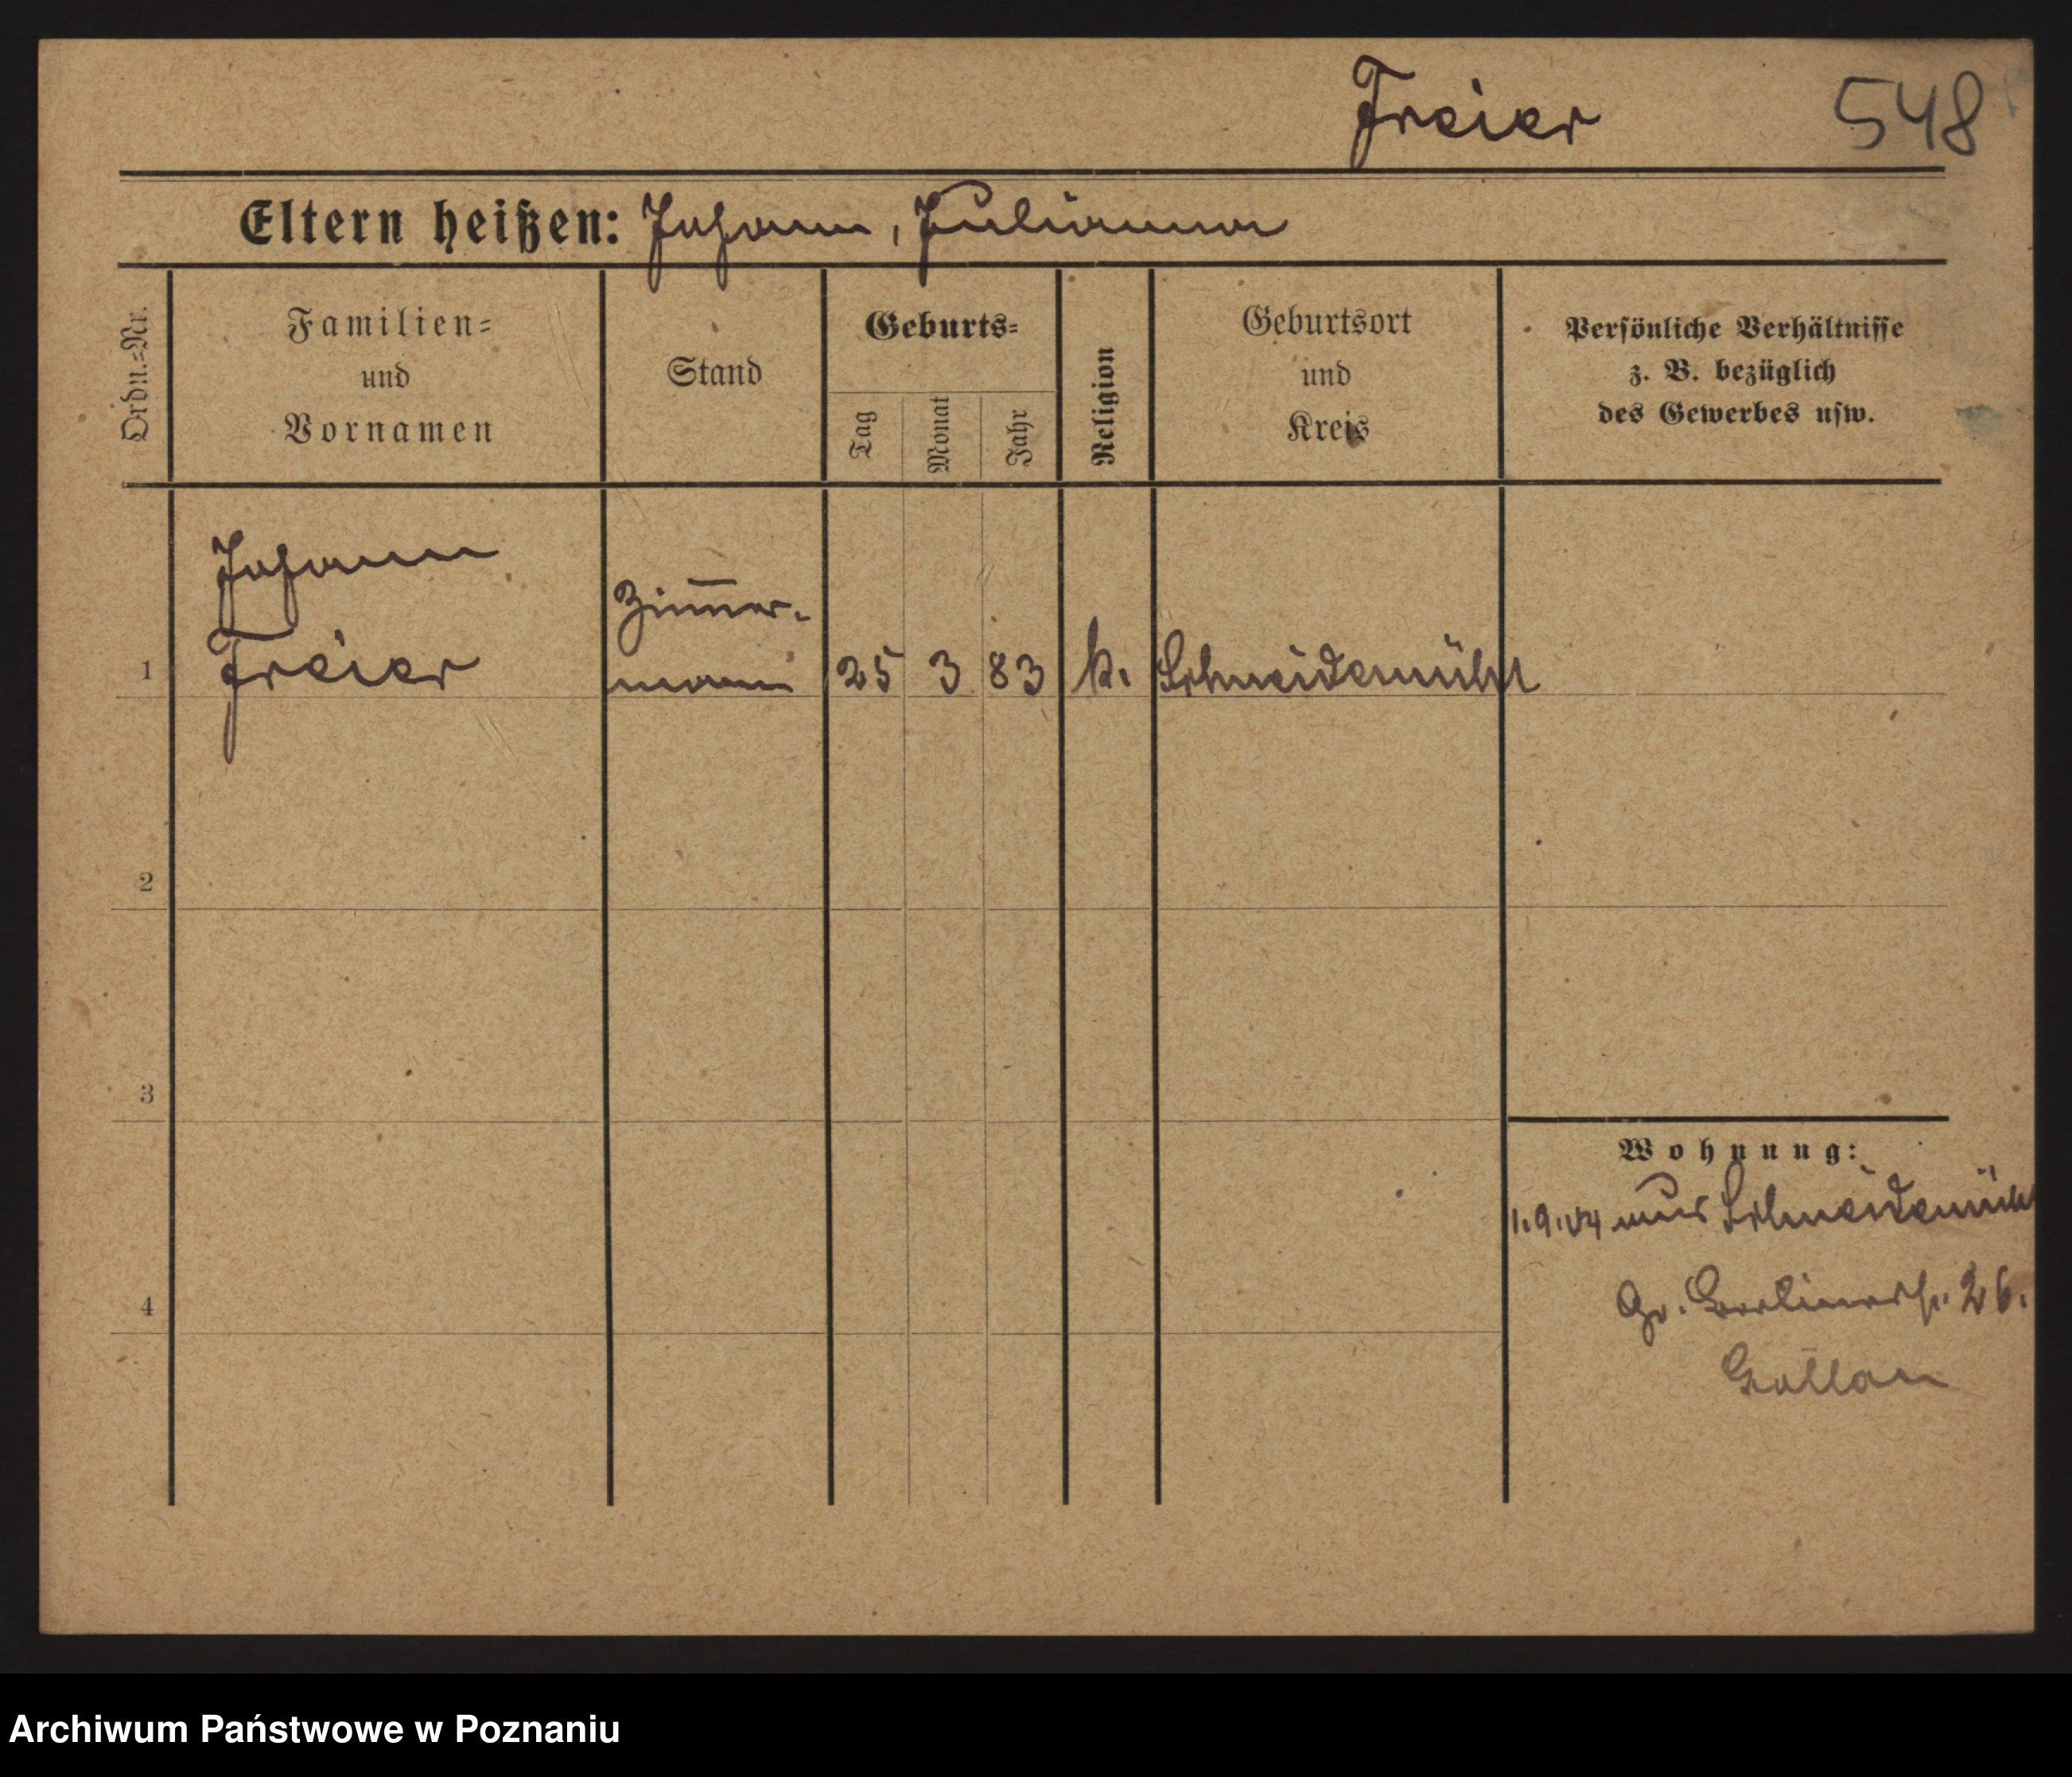 Freier 548
Eltern heißen: Johann, Julianna
Ordn.=Nr.
Familien=
und
Vornamen
Stand
Geburts=
Tag
Monat
Jahr
Religion
Geburtsort
und
Kreis
Persönliche Verhältnisse
z. B. bezüglich
des Gewerbes usw.
Johann
Zim̅er-
1 Freier mann 25 3 83 k. Schneidemühl
2
3
4
Wohnung:
1.9.04 aus Schneidemühl
Gr. Berlinerstr. 26.
Gollan
Archiwum Państwowe w Poznaniu